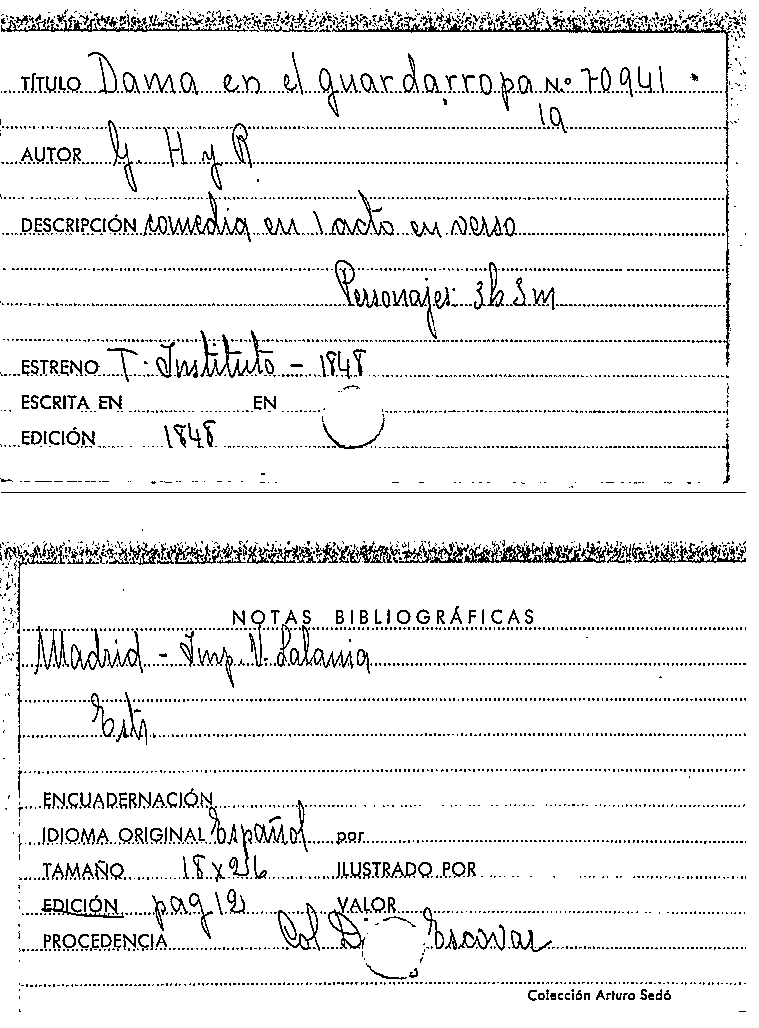 TÍTULO Dama en el guardarropa Nº 70941
19
AUTOR G. H y R.
DESCRIPCIÓN comedia en 1 acto en verso
Personajes: 3h 3m
ESTRENO T. Instituto - 1848
ESCRITA EN EN
EDICIÓN 1848
NOTAS BIBLIOGRÁFICAS
Madrid - Imp. V. Lalama
Estr.
ENCUADERNACIÓN
IDIOMA ORIGINAL Español por
TAMAÑO 18 x 26 ILUSTRADO POR
EDICIÓN pag 12 VALOR
PROCEDENCIA Col D Escovar
Colección Arturo Sedó